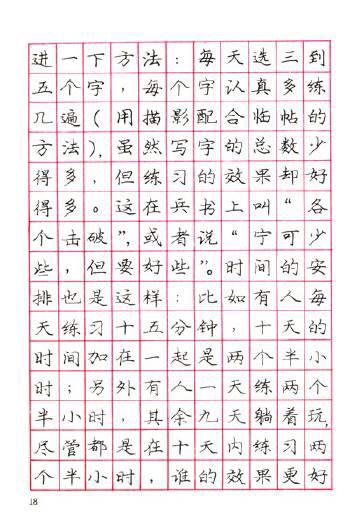 进一下方法：每天选三到
五个字，每个字认真多练
几遍（用描影配合临帖的
方法），虽然写字的总数少
得多，但练习的效果却好
得多。这在兵书上叫“各
个击破”，或者说“宁可少
些，但要好些”。时间的安
排也是这样：比如有人每
天练习十五分钟，十天的
时间加在一起是两个半小
时；另外有人一天练两个
半小时，其余九天躺着玩，
尽管都是在十天内练习两
个半小时，谁的效果更好
18